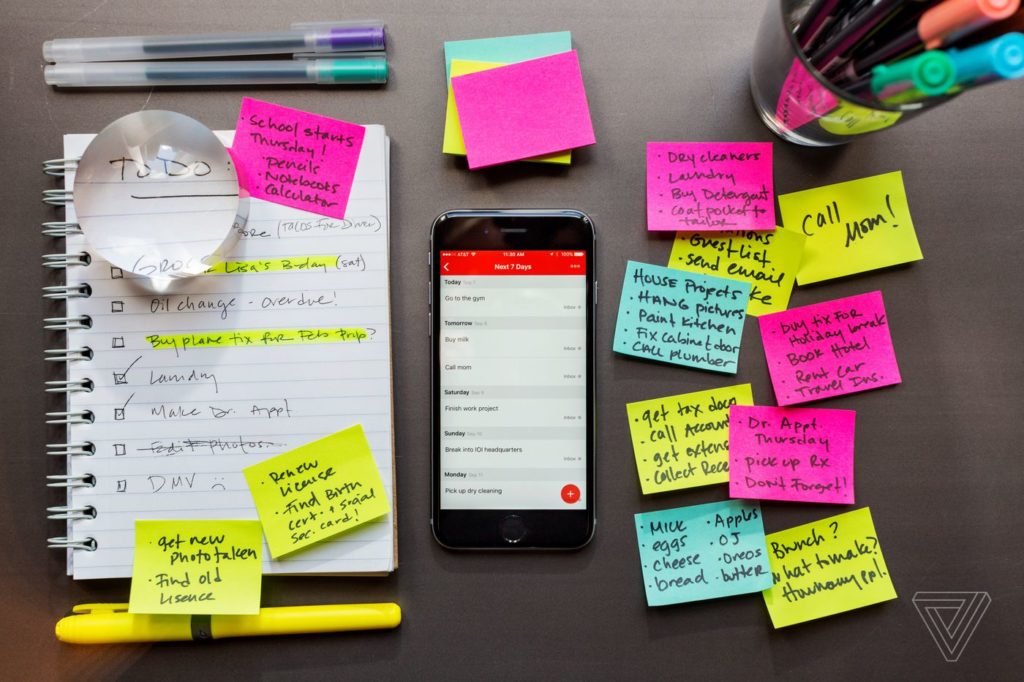 To Do:
(TACOS FOR Dinner)
Lisa's B-day (sat)
Oil change - overdue!
Buy plane tix for Feb trip?
Laundry
Make Dr. Appt.
Edit photos.
DMV ☹
• School starts
Thursday!
• Pencils
• Notebooks
• Calculator
• Renew
License
• Find Birth
cert. + Social
Sec. card!
• get new
Photo taken
• Find old
Lisence
AT&T 11:30 AM 100%
Next 7 Days
Today Sep 7
Go to the gym
Inbox
Tomorrow Sep 8
Buy milk
Inbox
Call mom
Inbox
Saturday Sep 9
Finish work project
Inbox
Sunday Sep 10
Break into IOI headquarters
Inbox
Monday Sep 11
Pick up dry cleaning
• Dry cleaners
• Laundry
• Buy Detergent
• Coat pocket to
tailor
Guest list
• send email
Call
Mom!
HOUSE Projects
• HANG pictures
• Paint Kitchen
• Fix cabinet door
• CALL plumber
• Buy tix FOR
Holiday break
• Book Hotel
• Rent Car
• Travel Ins.
• get tax docs
• call
• get
• collect
• Dr. Appt.
Thursday
• pick up Rx
• Don't Forget!
• MILK • Apples
• eggs • OJ
• cheese • Oreos
• bread • butter
Brunch?
what to make?